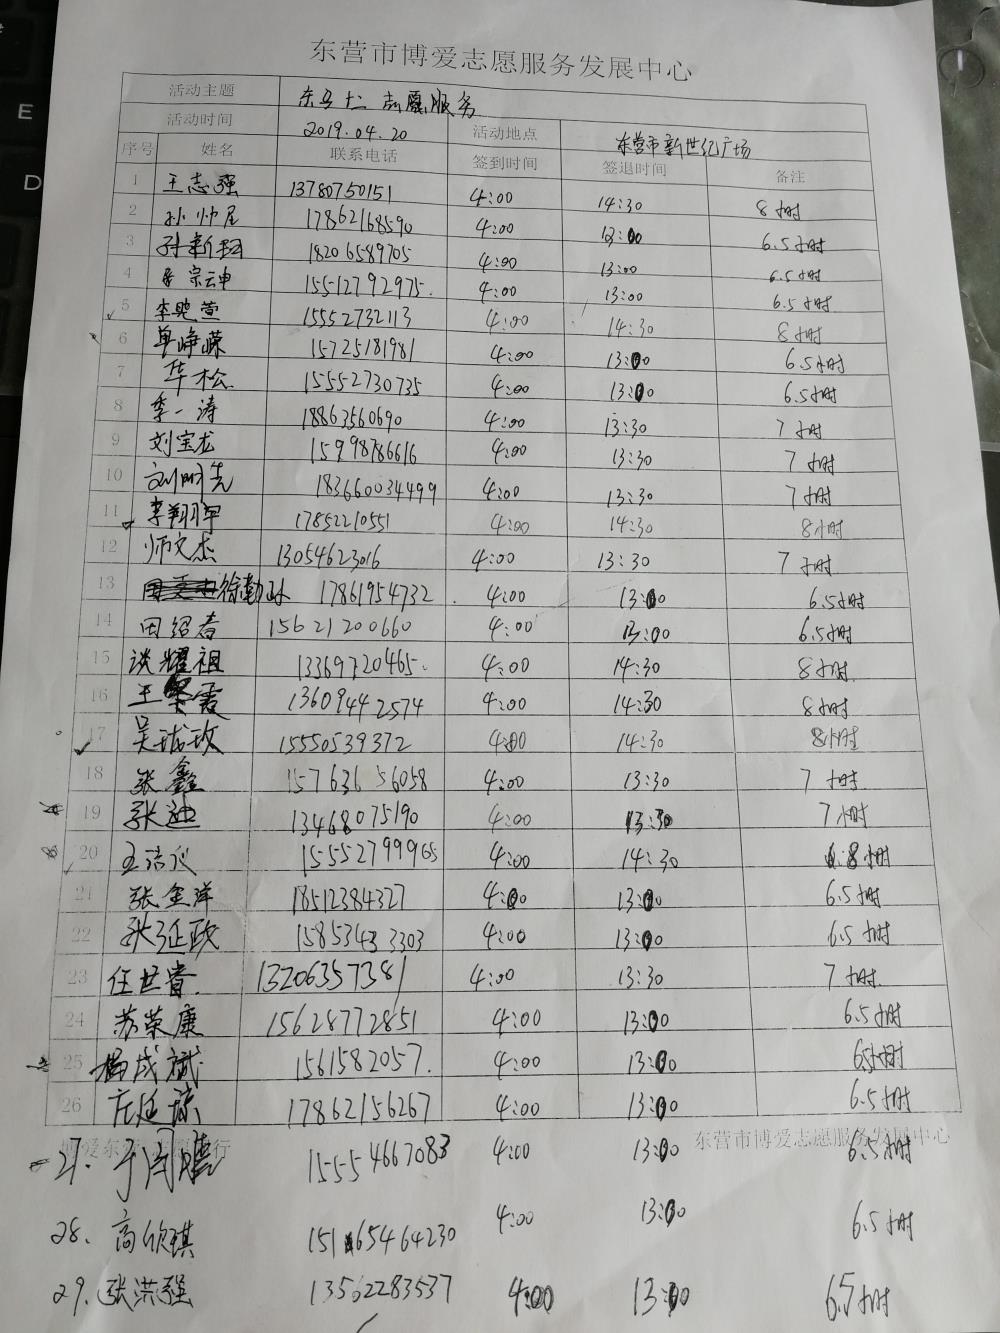 东营市博爱志愿服务发展中心
活动主题 东马士二 志愿服务
活动时间 2019.04.20 活动地点 东营市新世纪广场
序号 姓名 联系电话 签到时间 签退时间 备注
1 王志强 13780750151 4:00 14:30 8小时
2 孙帅 17862168590 4:00 13:00 6.5小时
3 孙新 18206589705 4:00 13:00 6.5小时
4 宗云申 15512792975. 4:00 13:00 6.5小时
5 李晓萱 15552732113 4:00 14:30 8小时
6 单峥嵘 15725181981 4:00 13:00 6.5小时
7 华松 15552730735 4:00 13:00 6.5小时
8 季一涛 18863560690 4:00 13:30 7小时
9 刘宝龙 15998786616 4:00 13:30 7小时
10 刘明先 183660034499 4:00 13:30 7小时
11 李翔宇 17852210551 4:00 14:30 8小时
12 师文杰 13054623016 4:00 13:30 7小时
13 徐勤 17861954732. 4:00 13:00 6.5小时
14 田绍春 15621200660 4:00 13:00 6.5小时
15 谈耀祖 13369720465. 4:00 14:30 8小时.
16 王霞 13609442574 4:00 14:30 8小时
17 吴珑玫 15550539372 4:00 14:30 8小时
18 张鑫 15763656058 4:00 13:30 7小时
19 张迪 13468075190 4:00 13:30 7小时
20 王洁仪 15552799965 4:00 14:30 8小时
21 张金洋 18512384327 4:00 13:00 6.5小时
22 张征政 15853433303 4:00 13:00 6.5小时
23 任世睿. 13206357381 4:00 13:30 7小时.
24 苏荣康 15628772851 4:00 13:00 6.5小时
25 杨成斌 1561582057. 4:00 13:00 6.5小时
26 庄廷 17862156267 4:00 13:00 6.5小时
博爱东营 志愿同行 东营市博爱志愿服务发展中心
27. 于闰 15554667083 4:00 13:00 6.5小时
28. 高欣琪 15165464230 4:00 13:00 6.5小时
29. 张洪强 13562283537 4:00 13:00 6.5小时